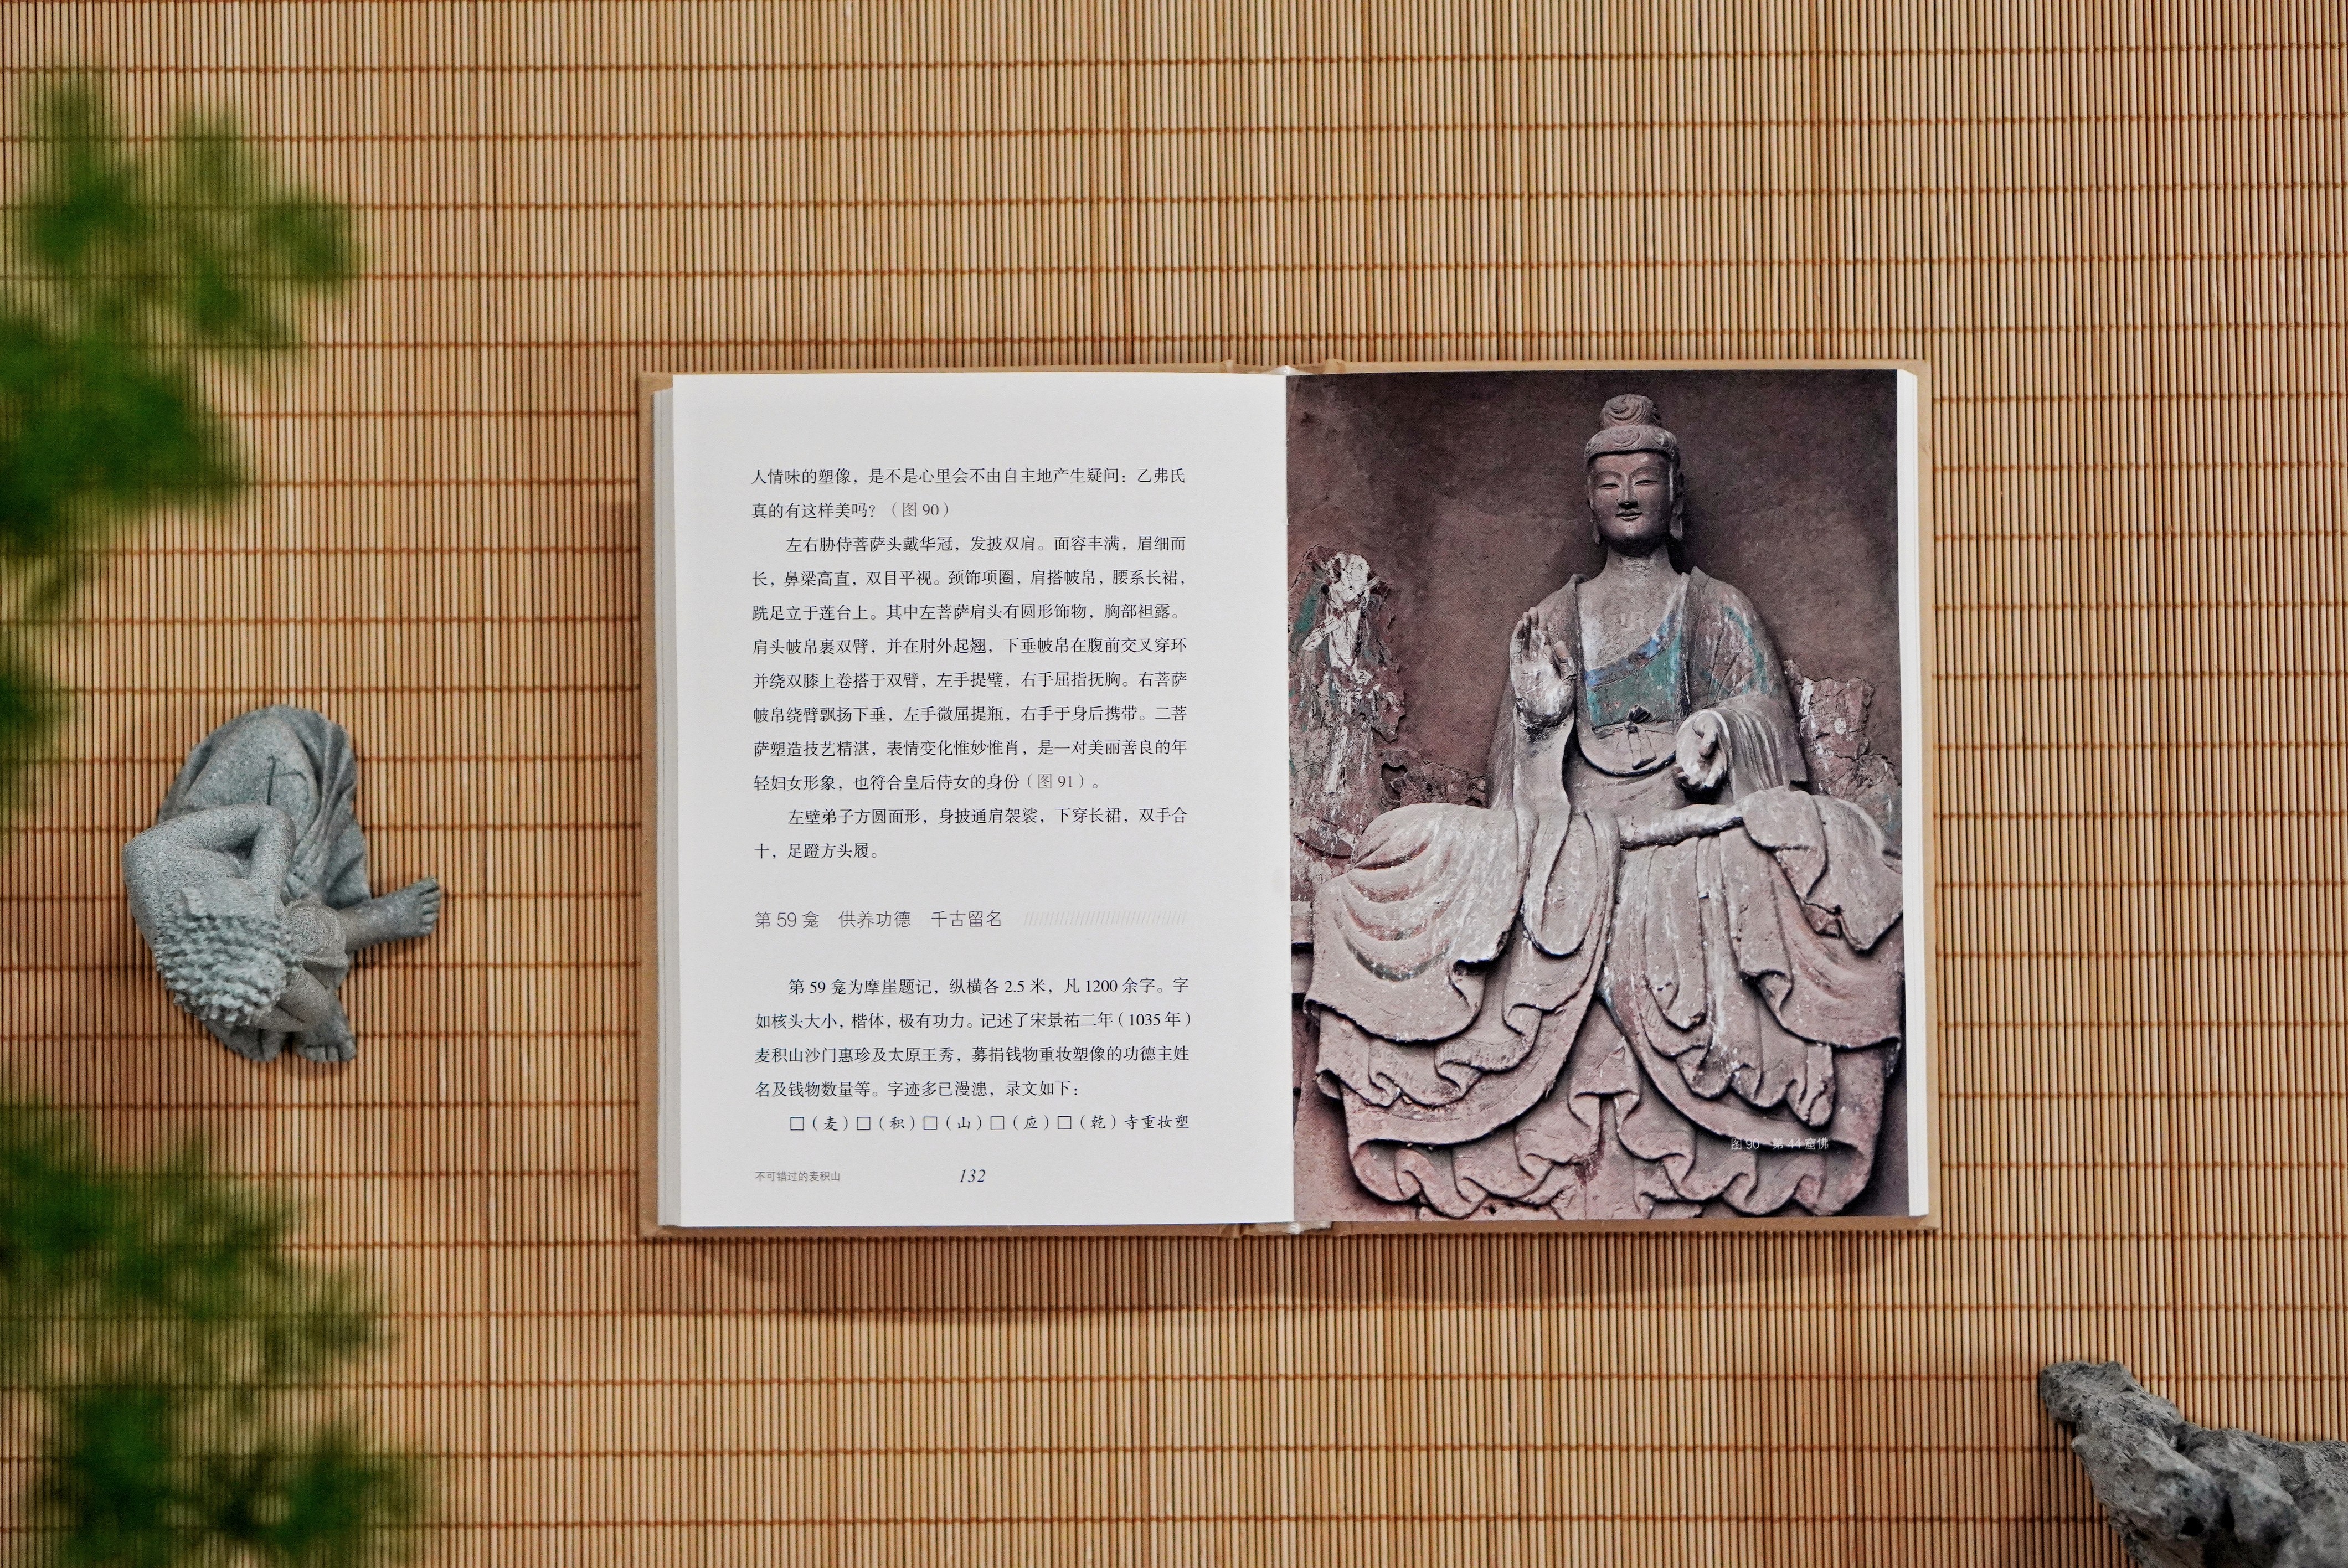 人情味的塑像，是不是心里会不由自主地产生疑问：乙弗氏
真的有这样美吗？（图 90）
左右胁侍菩萨头戴华冠，发披双肩。面容丰满，眉细而
长，鼻梁高直，双目平视。颈饰项圈，肩搭帔帛，腰系长裙，
跣足立于莲台上。其中左菩萨肩头有圆形饰物，胸部袒露。
肩头帔帛裹双臂，并在肘外起翘，下垂帔帛在腹前交叉穿环
并绕双膝上卷搭于双臂，左手提璧，右手屈指抚胸。右菩萨
帔帛绕臂飘扬下垂，左手微屈提瓶，右手于身后携带。二菩
萨塑造技艺精湛，表情变化惟妙惟肖，是一对美丽善良的年
轻妇女形象，也符合皇后侍女的身份（图 91）。
左壁弟子方圆面形，身披通肩袈裟，下穿长裙，双手合
十，足蹬方头履。
第 59 龛　供养功德　千古留名
第 59 龛为摩崖题记，纵横各 2.5 米，凡 1200 余字。字
如核头大小，楷体，极有功力。记述了宋景祐二年（1035 年）
麦积山沙门惠珍及太原王秀，募捐钱物重妆塑像的功德主姓
名及钱物数量等。字迹多已漫漶，录文如下：
□（麦）□（积）□（山）□（应）□（乾）寺重妆塑
不可错过的麦积山
132
图 90　第 44 窟佛